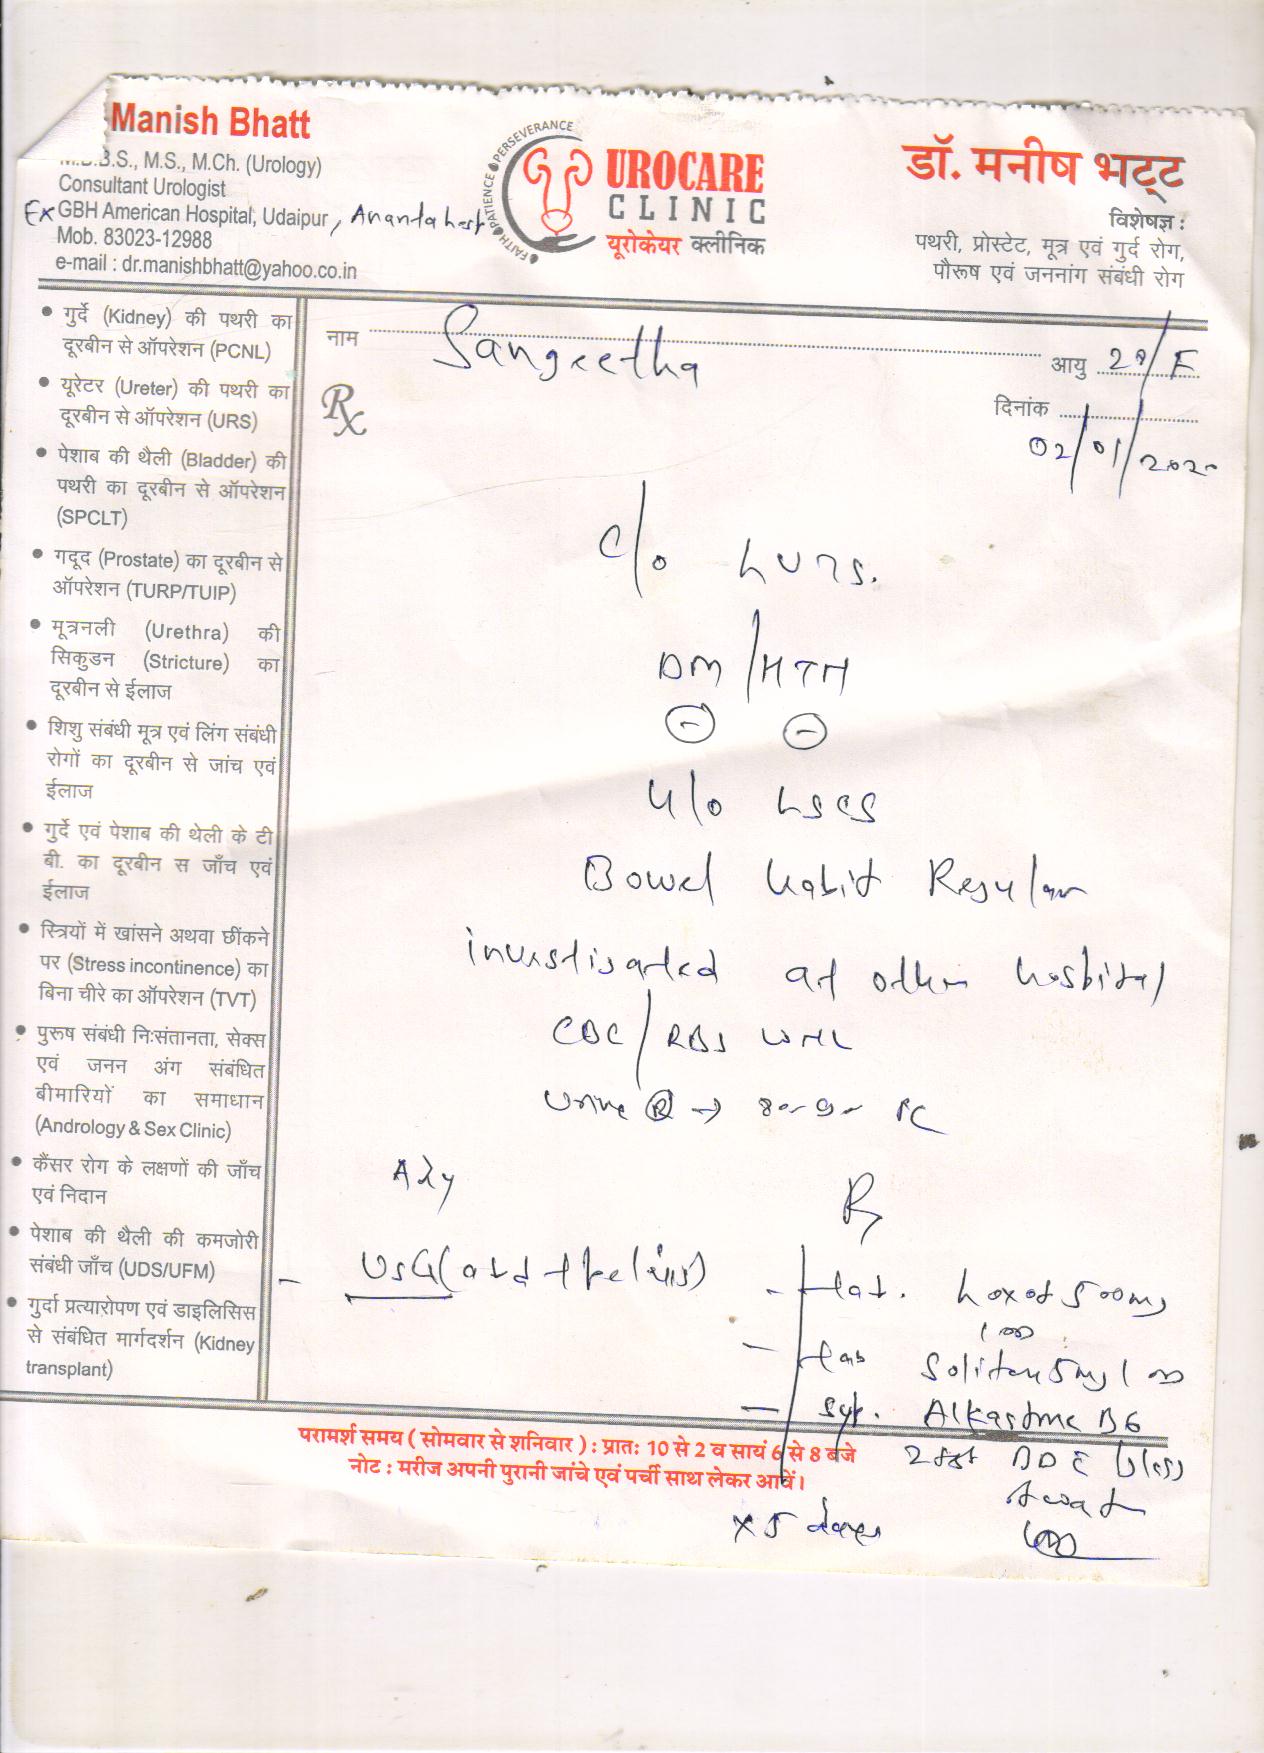 Manish Bhatt
M.B.B.S., M.S., M.Ch. (Urology)
Consultant Urologist
Ex GBH American Hospital, Udaipur, Ananta
Mob. 83023-12988
e-mail : dr.manishbhatt@yahoo.co.in
FAITH PATIENCE PERSEVERANCE
UROCARE
CLINIC
यूरोकेयर क्लीनिक
डॉ. मनीष भट्ट
विशेषज्ञ :
पथरी, प्रोस्टेट, मूत्र एवं गुर्द रोग,
पौरूष एवं जननांग संबंधी रोग
• गुर्दे (Kidney) की पथरी का
दूरबीन से ऑपरेशन (PCNL)
• यूरेटर (Ureter) की पथरी का
दूरबीन से ऑपरेशन (URS)
• पेशाब की थैली (Bladder) की
पथरी का दूरबीन से ऑपरेशन
(SPCLT)
• गदूद (Prostate) का दूरबीन से
ऑपरेशन (TURP/TUIP)
• मूत्रनली (Urethra) की
सिकुडन (Stricture) का
दूरबीन से ईलाज
• शिशु संबंधी मूत्र एवं लिंग संबंधी
रोगों का दूरबीन से जांच एवं
ईलाज
• गुर्दे एवं पेशाब की थेली के टी
बी. का दूरबीन स जाँच एवं
ईलाज
• स्त्रियों में खांसने अथवा छींकने
पर (Stress incontinence) का
बिना चीरे का ऑपरेशन (TVT)
• पुरूष संबंधी निःसंतानता, सेक्स
एवं जनन अंग संबंधित
बीमारियों का समाधान
(Andrology & Sex Clinic)
• कैंसर रोग के लक्षणों की जाँच
एवं निदान
• पेशाब की थैली की कमजोरी
संबंधी जाँच (UDS/UFM)
• गुर्दा प्रत्यारोपण एवं डाइलिसिस
से संबंधित मार्गदर्शन (Kidney
transplant)
नाम Sangeetha
आयु /F
दिनांक
02/01/2020
Rx
c/o LUTS.
DM/HTN
(-) (-)
H/o LSCS
Bowel habit Regular
investigated at other hospital
CBC/RBS WNL
Urine (R) → 80-90 PC
Adv
- USG (abd + pelvis)
Rx
- tab. Loxof 500mg
1 OD
- tab Soliten 5mg 1 OD
- syp. Alkastone B6
2 tsf BD c glass
of water
x 5 days
परामर्श समय ( सोमवार से शनिवार ) : प्रातः 10 से 2 व सायं 6 से 8 बजे
नोट : मरीज अपनी पुरानी जांचे एवं पर्ची साथ लेकर आवें।